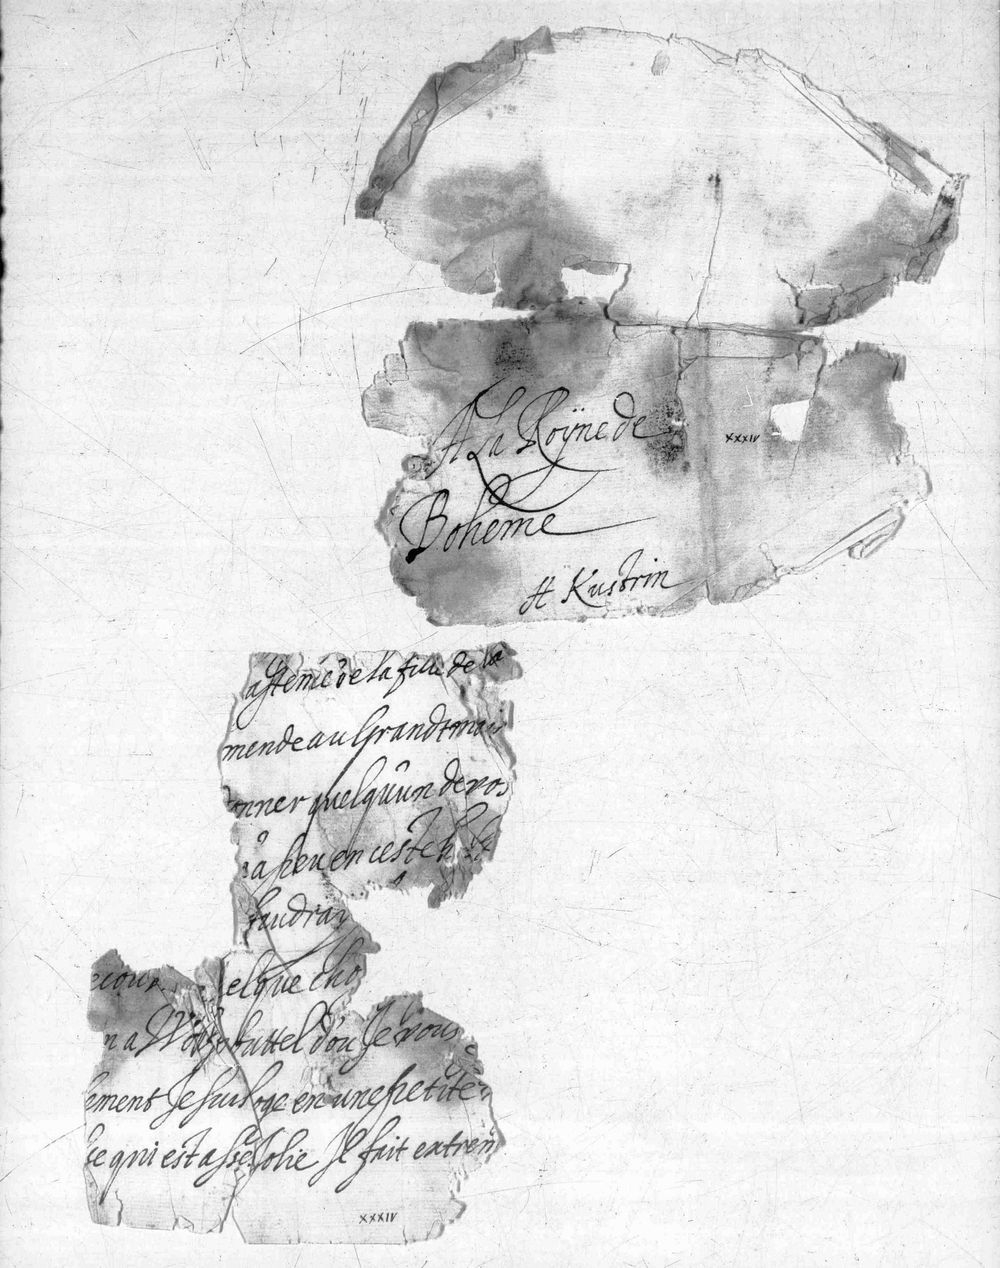 A La Roÿne de
XXXIV
Bohême
A Kustrin
de la fille de la
mende au Grandtmais
onner quelqu'un de vos
a peu en ceste
faudray
ecour elque cho
n a Wolfenbuttel d'ou Je vous
ement Je suis loge en une petite
ce qui est asse Jolie Il fait extrem
XXXIV